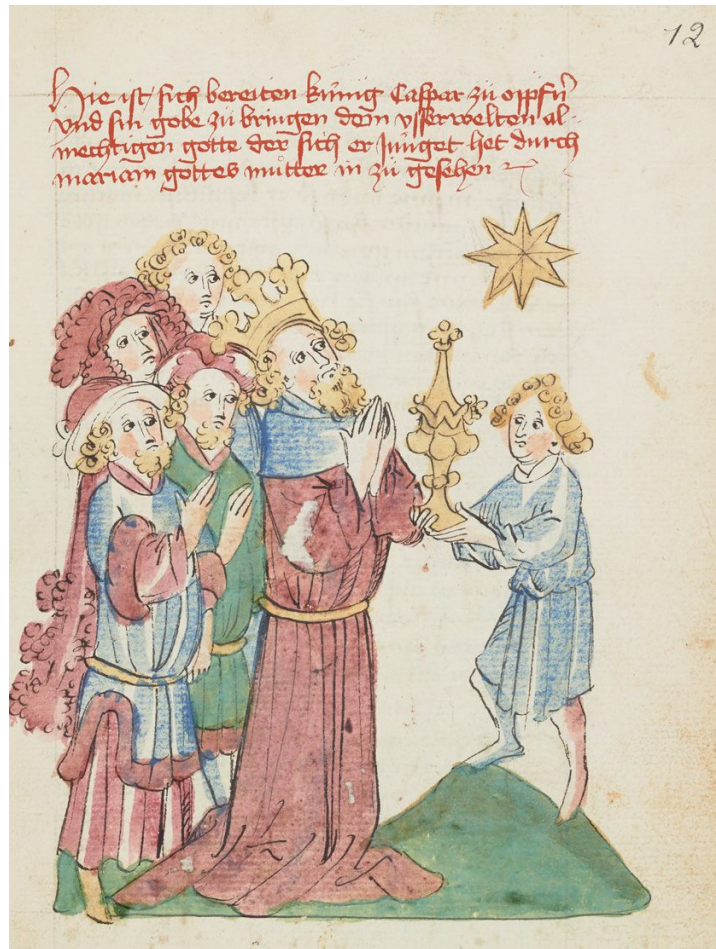 12
Hie ist sich bereiten kúnig Caspar zú opffn̄
vnd sin gobe zú bringen dem vsserwelten al-
mechtigen gotte der sich er júnget het durch
mariam gottes můtter in zú gesehen